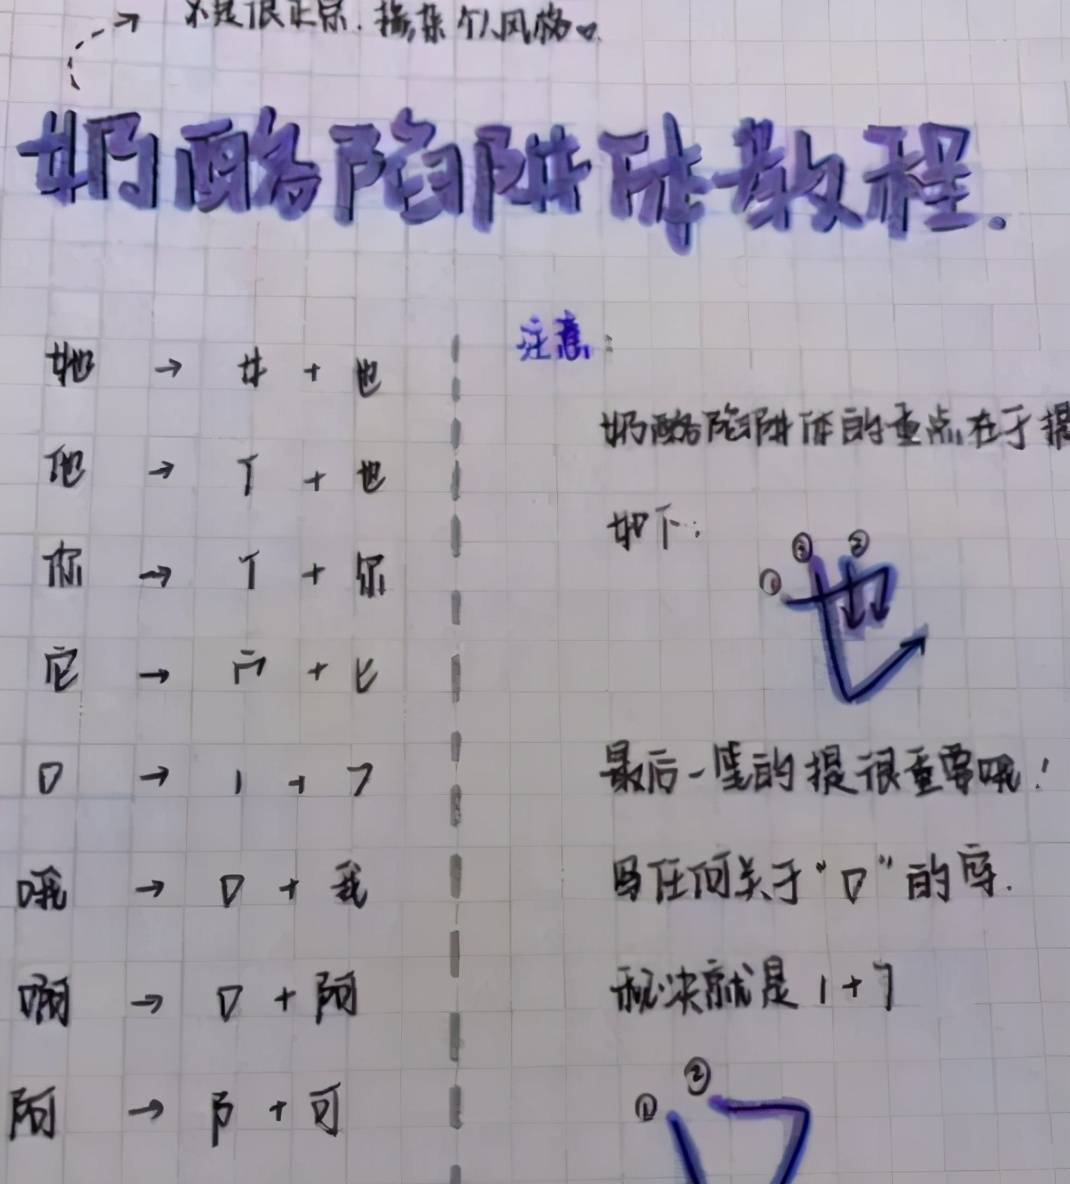 不是很正宗.掺杂个人风格
奶酪陷阱体教程.
她 → 女 + 也
他 → 亻 + 也
你 → 亻 + 尔
它 → 宀 + 匕
口 → 丨 + ㄱ
哦 → 口 + 我
啊 → 口 + 阿
阿 → 阝 + 可
注意:
奶酪陷阱体的重点在于提
如下:
① ③ ②
也
最后一笔的提很重要哦!
写任何关于“口”的字.
秘诀就是 丨+ㄱ
① ②